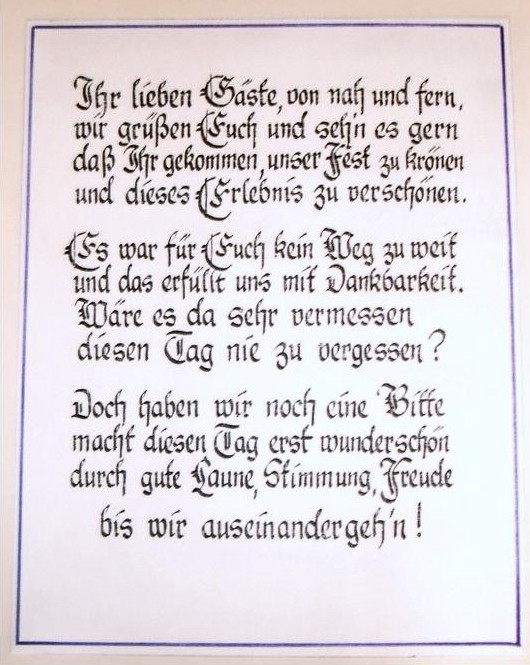 Ihr lieben Gäste, von nah und fern,
wir grüßen Euch und seh'n es gern
daß Ihr gekommen, unser Fest zu krönen
und dieses Erlebnis zu verschönen.
Es war für Euch kein Weg zu weit
und das erfüllt uns mit Dankbarkeit.
Wäre es da sehr vermessen
diesen Tag nie zu vergessen?
Doch haben wir noch eine Bitte
macht diesen Tag erst wunderschön
durch gute Laune, Stimmung, Freude
bis wir auseinandergeh'n!